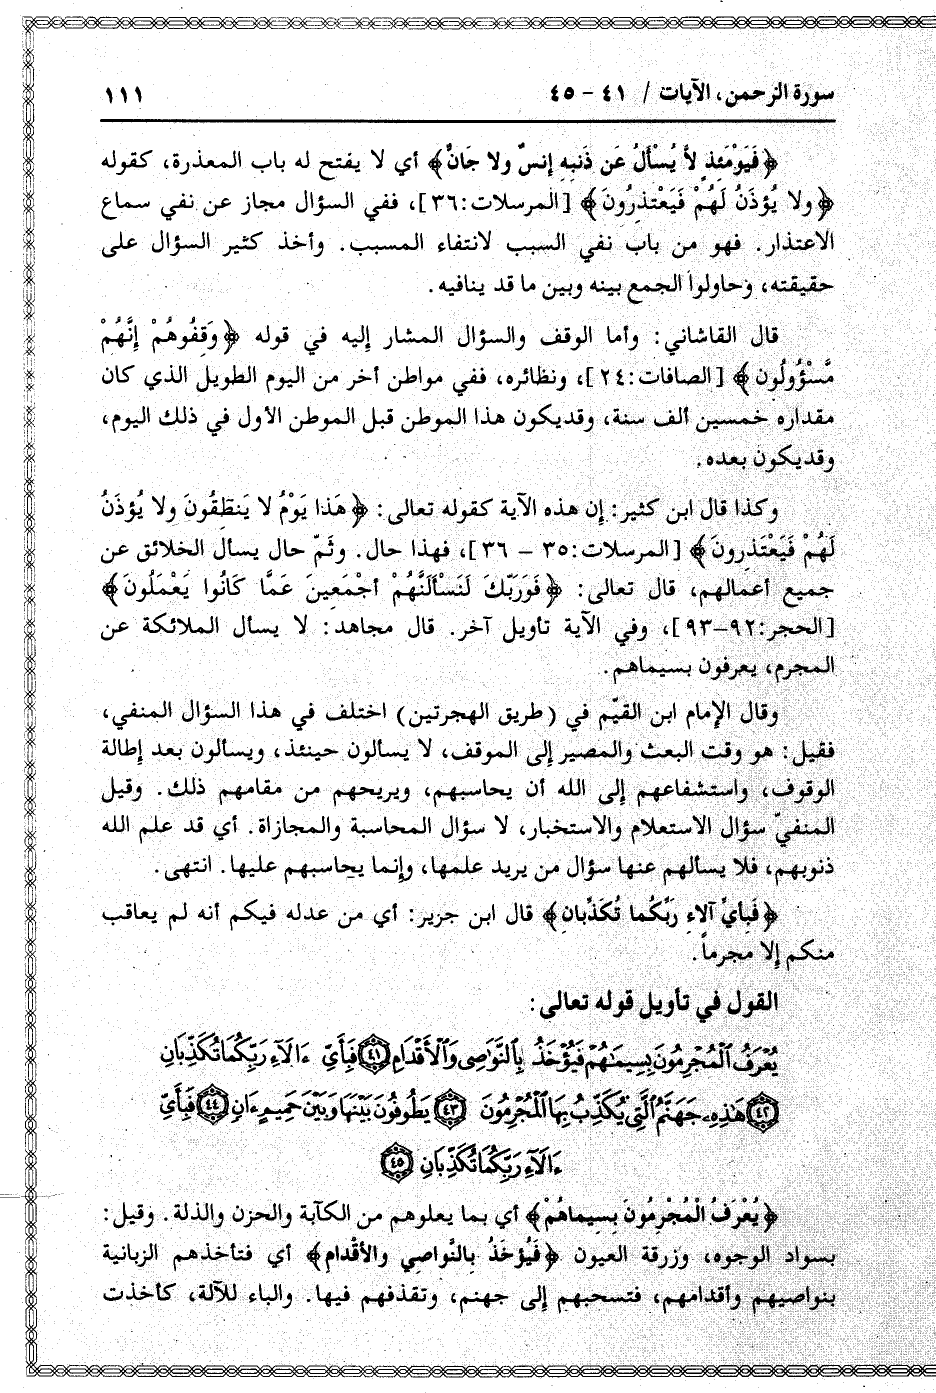 سورة الرحمن، الآيات / ٤١ - ٤٥ ١١١
﴿فَيَوْمَئذٍ لاَ يُسْأَلُ عَن ذَنبِهِ إنسٌ ولا جَانٌّ﴾ أي لا يفتح له باب المعذرة، كقوله
﴿ولا يُؤذَنُ لَهُمْ فَيَعْتذِرُونَ﴾ [المرسلات:٣٦]، ففي السؤال مجاز عن نفي سماع
الاعتذار. فهو من باب نفي السبب لانتفاء المسبب. وأخذ كثير السؤال على
حقيقته، وحاولوا الجمع بينه وبين ما قد ينافيه.
قال القاشاني: وأما الوقف والسؤال المشار إليه في قوله ﴿وَقِفُوهُمْ إنَّهُمْ
مَّسْؤُولُون﴾ [الصافات:٢٤]، ونظائره، ففي مواطن أخر من اليوم الطويل الذي كان
مقداره خمسين ألف سنة، وقديكون هذا الموطن قبل الموطن الأول في ذلك اليوم،
وقديكون بعده.
وكذا قال ابن كثير: إن هذه الآية كقوله تعالى: ﴿هَذا يَوْمُ لا يَنطِقُونَ ولا يُؤذَنُ
لَهُمْ فَيَعْتَذِرونَ﴾ [المرسلات:٣٥ - ٣٦]، فهذا حال. وثَمّ حال يسأل الخلائق عن
جميع أعمالهم، قال تعالى: ﴿فَوَرَبِّكَ لَنَسْأَلَنَّهُمْ أجْمَعِينَ عَمَّا كَانُوا يَعْمَلُونَ﴾
[الحجر:٩٢-٩٣]، وفي الآية تأويل آخر. قال مجاهد: لا يسأل الملائكة عن
المجرم، يعرفون بسيماهم.
وقال الإمام ابن القيّم في (طريق الهجرتين) اختلف في هذا السؤال المنفي،
فقيل: هو وقت البعث والمصير إلى الموقف، لا يسألون حينئذ، ويسألون بعد إطالة
الوقوف، واستشفاعهم إلى الله أن يحاسبهم، ويريحهم من مقامهم ذلك. وقيل
المنفيّ سؤال الاستعلام والاستخبار، لا سؤال المحاسبة والمجازاة. أي قد علم الله
ذنوبهم، فلا يسألهم عنها سؤال من يريد علمها، وإنما يحاسبهم عليها. انتهى.
﴿فَبِأَيِّ آلاءِ رَبِّكُما تُكَذِّبانِ﴾ قال ابن جرير: أي من عدله فيكم أنه لم يعاقب
منكم إلا مجرماً.
القول في تأويل قوله تعالى:
يُعْرَفُ ٱلْمُجْرِمُونَ بِسِيمَٰهُمْ فَيُؤْخَذُ بِٱلنَّوَٰصِى وَٱلْأَقْدَامِ ﴿٤١﴾ فَبِأَىِّ ءَالَآءِ رَبِّكُمَا تُكَذِّبَانِ
﴿٤٢﴾ هَٰذِهِۦ جَهَنَّمُ ٱلَّتِى يُكَذِّبُ بِهَا ٱلْمُجْرِمُونَ ﴿٤٣﴾ يَطُوفُونَ بَيْنَهَا وَبَيْنَ حَمِيمٍ ءَانٍ ﴿٤٤﴾ فَبِأَىِّ
ءَالَآءِ رَبِّكُمَا تُكَذِّبَانِ ﴿٤٥﴾
﴿يُعْرَفُ الْمُجْرِمُونَ بِسِيماهُمْ﴾ أي بما يعلوهم من الكآبة والحزن والذلة. وقيل:
بسواد الوجوه، وزرقة العيون ﴿فَيُؤخَذُ بِالنَّواصِي والأقْدامِ﴾ أي فتأخذهم الزبانية
بنواصيهم وأقدامهم، فتسحبهم إلى جهنم، وتقذفهم فيها. والباء للآلة، كأخذت